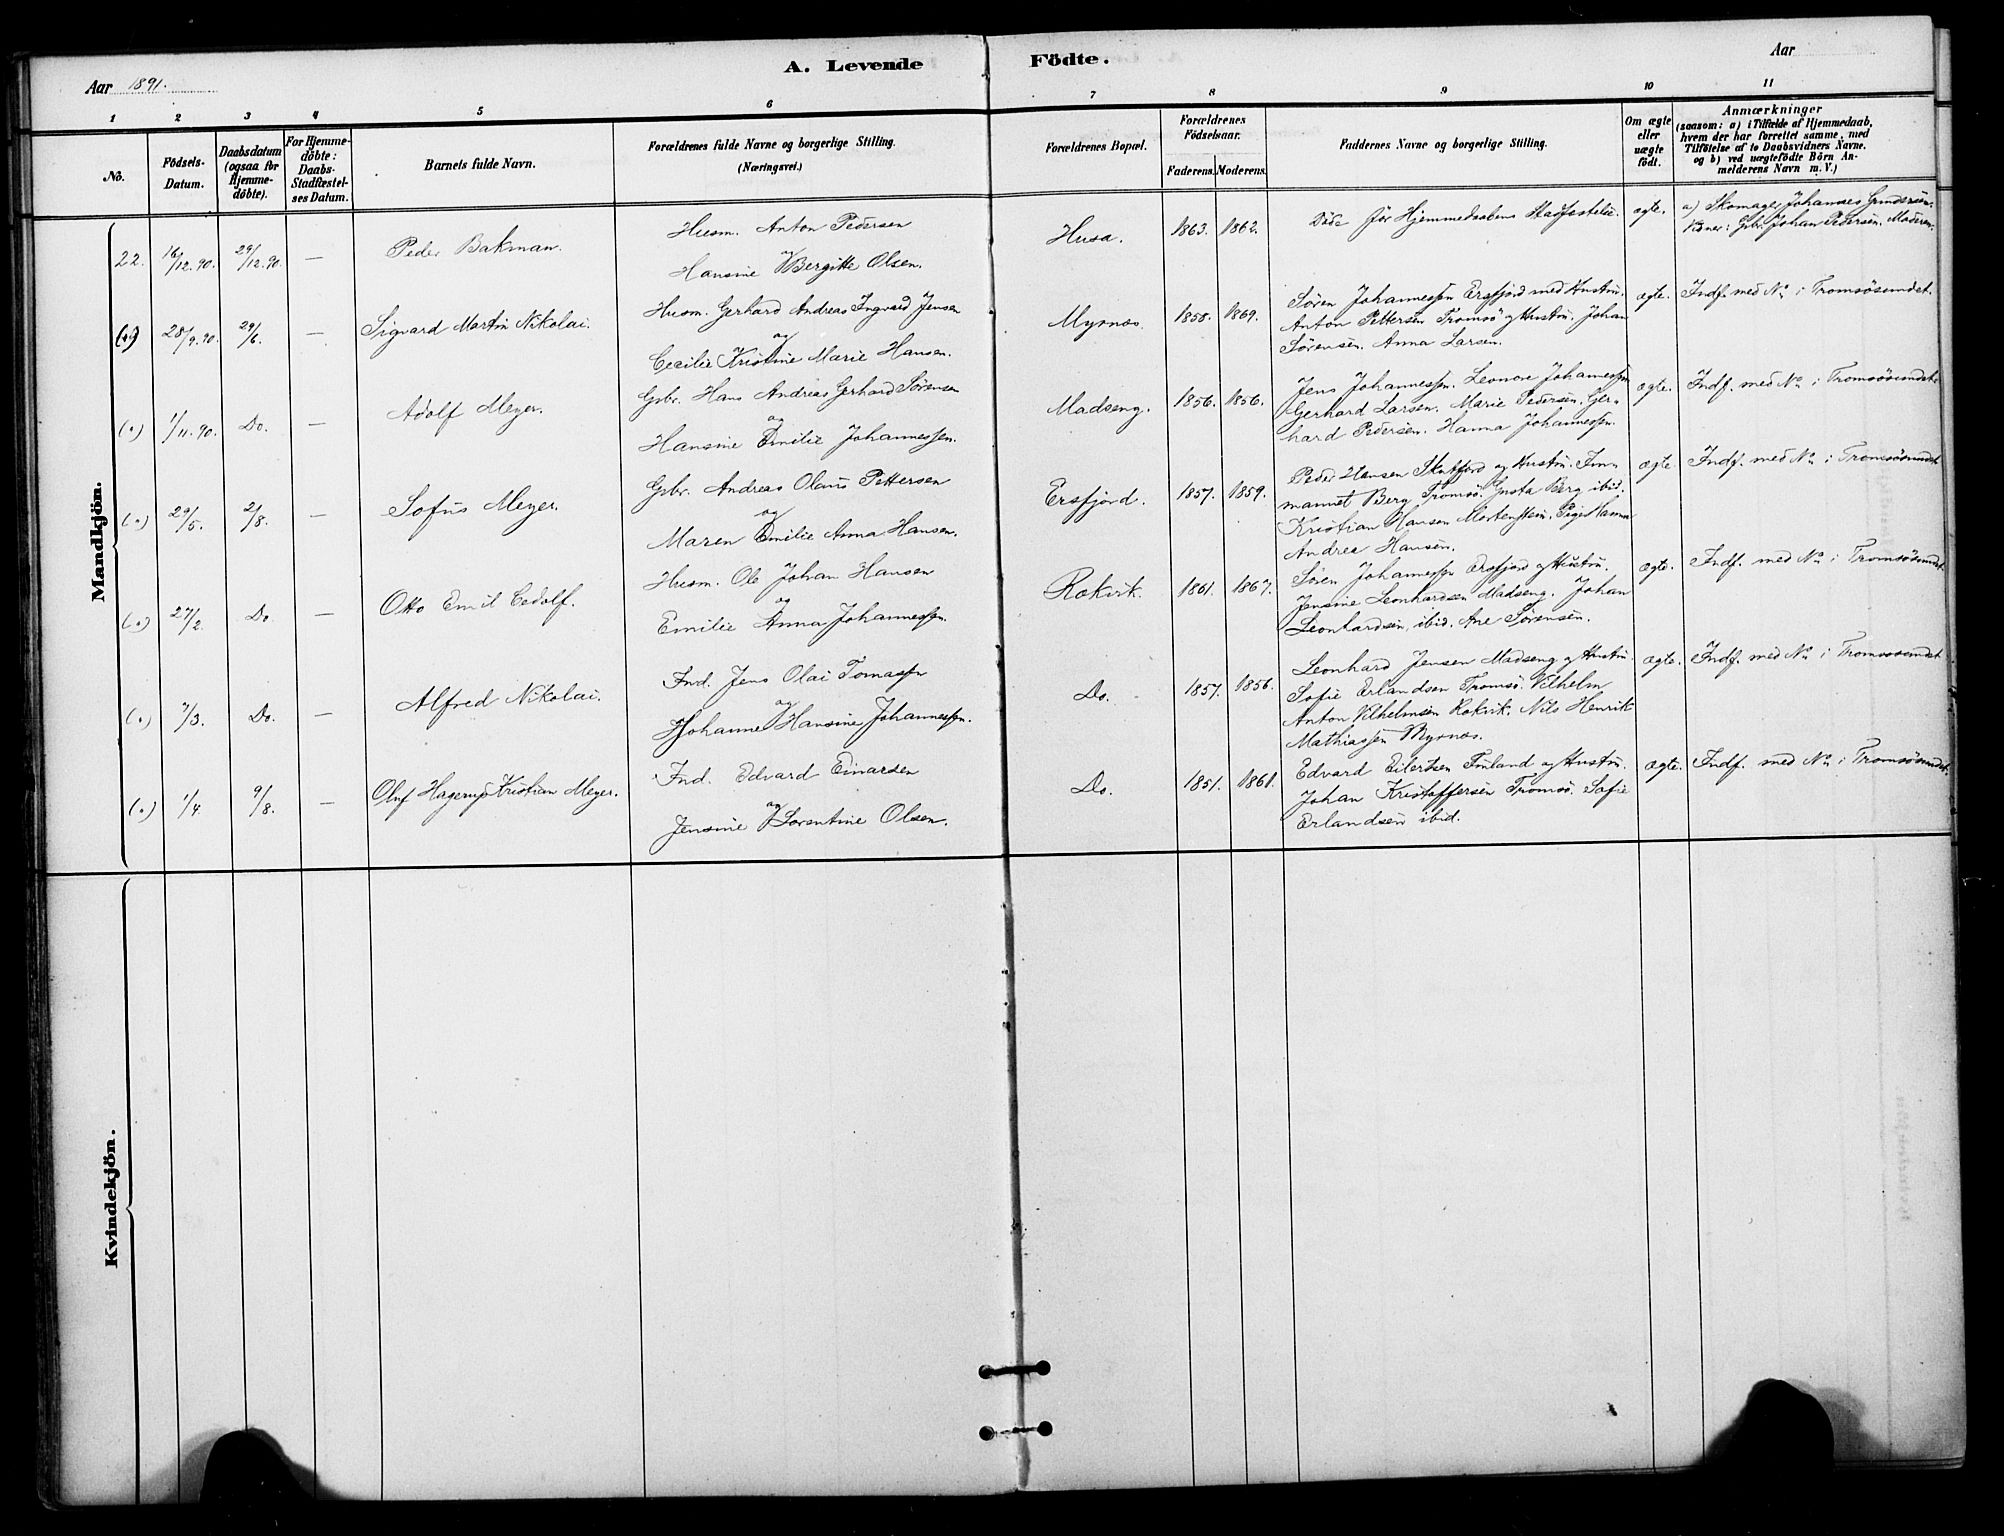 Aar 1891.
A. Levende Födte.
Aar
1 2 3 4 5 6 7 8 9 10 11
No.
Födsels-Datum.
Daabsdatum (ogsaa for Hjemme-döbte).
For Hjemme-döbte: Daabs-Stadfæstel-ses Datum.
Barnets fulde Navn.
Forældrenes fulde Navne og borgerlige Stilling. (Næringsvei.)
Forældrenes Bopæl.
Forældrenes Födselsaar.
Faderens. Moderens.
Faddernes Navne og borgerlige Stilling.
Om ægte eller uægte födt.
Anmærkninger
(saasom: a) i Tilfælde af Hjemmedaab,
hvem der har forrettet samme, med
Tilföielse af to Daabsvidners Navne.
og b) ved uægtefödte Börn An-
melderens Navn m. V.)
Mandkjön.
22. 16/12.90. 29/12.90. — Peder Bakman.
Husm. Anton Pedersen
og
Hansine Bergitte Olsen.
Husa. 1863. 1862.
Döde før Hjemmedaabens Stadfæstelse.
ægte.
a) Skomager Johannes Gundersen.
Vidner: Gbr. Johan Pedersen. Moderen.
28/9.90. 29/6. — Sigvard Martin Nikolai.
Husm. Gerhard Andreas Ingvard Jensen
og
Cecilie Kristine Marie Hansen.
Myrnæs. 1858. 1869.
Søren Johannessen Ersfjord med Hustru.
Anton Pettersen Tromsö og Hustru. Johan
Sørensen. Anna Larsen.
ægte. Indf. med No i Tromsösundet.
(.) 1/11.90. Do. — Adolf Meyer.
Gbr. Hans Andreas Gerhard Sørensen
og
Hansine Emilie Johannessen.
Madseng. 1856. 1856.
Jens Johannessen. Leonore Johannessen
Gerhard Larsen. Marie Pedersen. Ger-
hard Pedersen. Hanna Johannessen.
ægte. Indf. med No i Tromsösundet.
(.) 29/5. 2/8. — Sofus Meyer.
Gbr. Andreas Olaus Pettersen
og
Maren Emilie Anna Hansen.
Ersfjord. 1857. 1859.
Peder Hansen og Hustru.
Berg Tromsö. Gusta Berg ibid.
Kristian Hansen Pige Hanna
Andrea Hansen.
ægte. Indf. med No i Tromsösundet
(.) 27/2. Do — Otto Emil Cedolf.
Husm. Ole Johan Hansen
og
Emilie Anna Johannessen.
Rakvik. 1861. 1867.
Søren Johannessen Ersfjord og Hustru.
Jensine Leonhardsen Madseng. Johan
Leonhardsen, ibid. Ane Sørensen.
ægte. Indf. med No i Tromsösundet
(.) 7/3. Do. — Alfred Nikolai.
Ind. Jens Olai Tomassen
og
Johanne Hansine Johannessen.
Do. 1857. 1856.
Leonhard Jensen Madseng og Hustru.
Sofie Erlandsen Tromsö. Vilhelm
Anton Vilhelmsen Rakvik. Nils Henrik
Mathiassen Myrnæs.
ægte. Indf. med No i Tromsösundet
(.) 1/4. 9/8. — Oluf Hagerup Kristian Meyer.
Ind. Edvard Einarsen
og
Jensine Sorentine Olsen.
Do. 1851. 1861.
Edvard Eilertsen Finland og Hustru.
Johan Kristoffersen Tromsö. Sofie
Erlandsen ibid.
ægte. Indf. med No i Tromsösundet.
Kvindekjön.